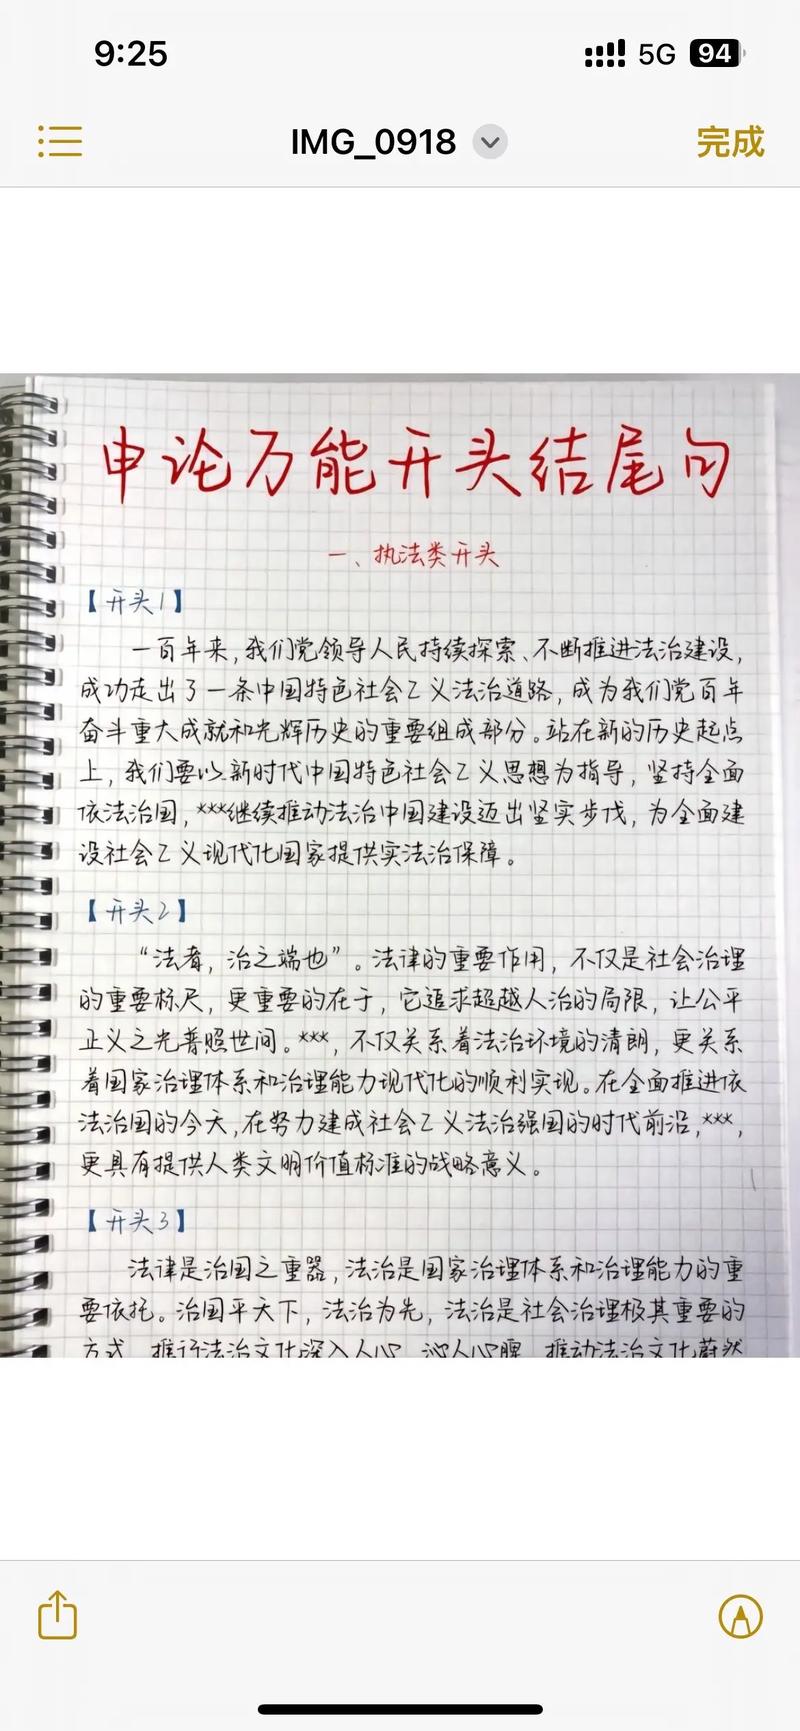 9:25
5G
94
IMG_0918
完成
申论万能开头结尾句
一、执法类开头
【开头1】
一百年来,我们党领导人民持续探索、不断推进法治建设,
成功走出了一条中国特色社会乙义法治道路,成为我们党百年
奋斗重大成就和光辉历史的重要组成部分。站在新的历史起点
上,我们要以新时代中国特色社会乙义思想为指导,坚持全面
依法治国,***继续推动法治中国建设迈出坚实步伐,为全面建
设社会乙义现代化国家提供实法治保障。
【开头2】
“法者,治之端也”。法律的重要作用,不仅是社会治理
的重要标尺,更重要的在于,它追求超越人治的局限,让公平
正义之光普照世间。***,不仅关系着法治环境的清朗,更关系
着国家治理体系和治理能力现代化的顺利实现。在全面推进依
法治国的今天,在努力建成社会乙义法治强国的时代前沿,***,
更具有提供人类文明价值标准的战略意义。
【开头3】
法律是治国之重器,法治是国家治理体系和治理能力的重
要依托。治国平天下,法治为先,法治是社会治理极其重要的
方式,推行法治文化深入人心、沁人心脾,推动法治文化蔚然